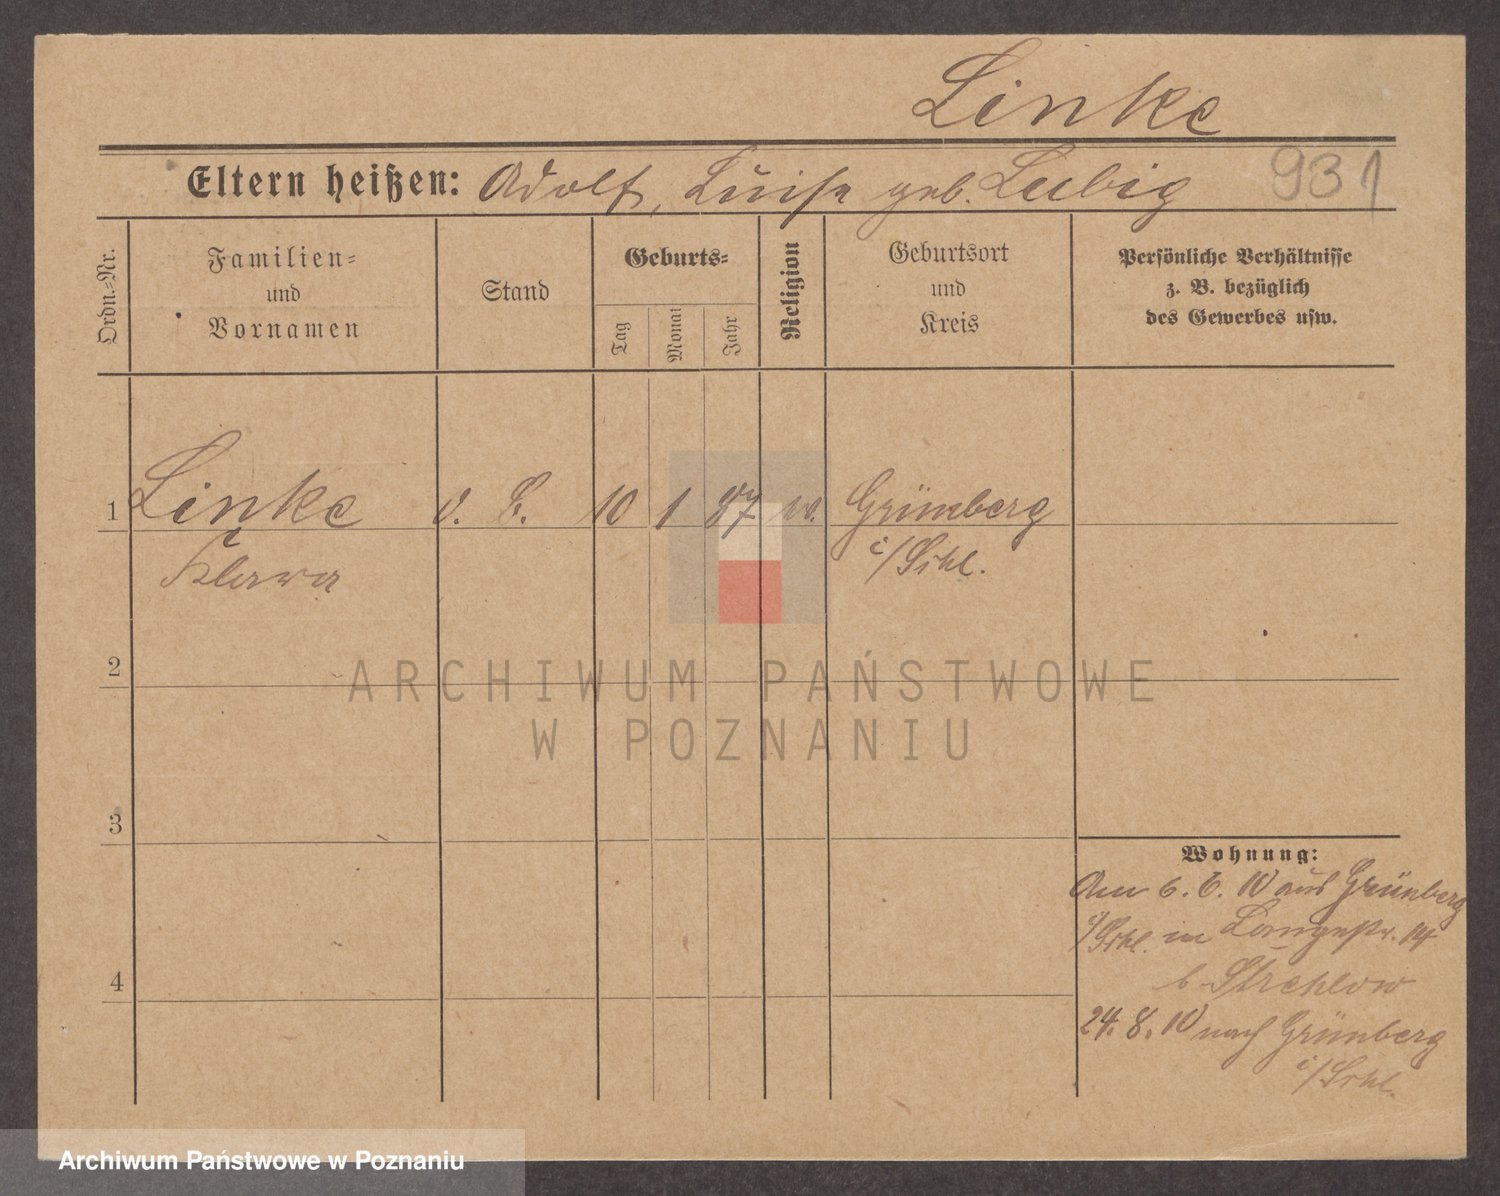 Linke
Eltern heißen: Adolf, Luise geb. Lubig 931
Ordn.-Nr.
Familien-
und
Vornamen
Stand
Geburts-
Tag
Monat
Jahr
Religion
Geburtsort
und
Kreis
Persönliche Verhältnisse
z. B. bezüglich
des Gewerbes usw.
1 Linke 10 1 87 Grünberg
Klara i/Schl.
2
3
4
Wohnung:
Am 6. 6. 10 aus Grünberg
i/Schl. in Langestr. 14
b Strehlow
24. 8. 10 nach Grünberg
i/Schl.
ARCHIWUM PAŃSTWOWE
W POZNANIU
Archiwum Państwowe w Poznaniu